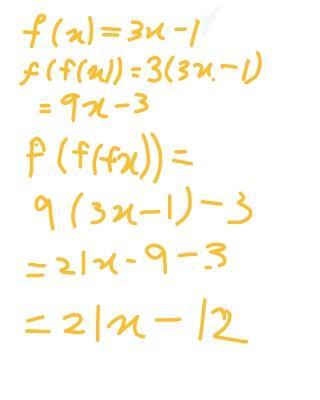 f(x)=3x-1
f(f(x))=3(3x-1)
=9x-3
f(f(fx))=
9(3x-1)-3
=21x-9-3
=21x-12